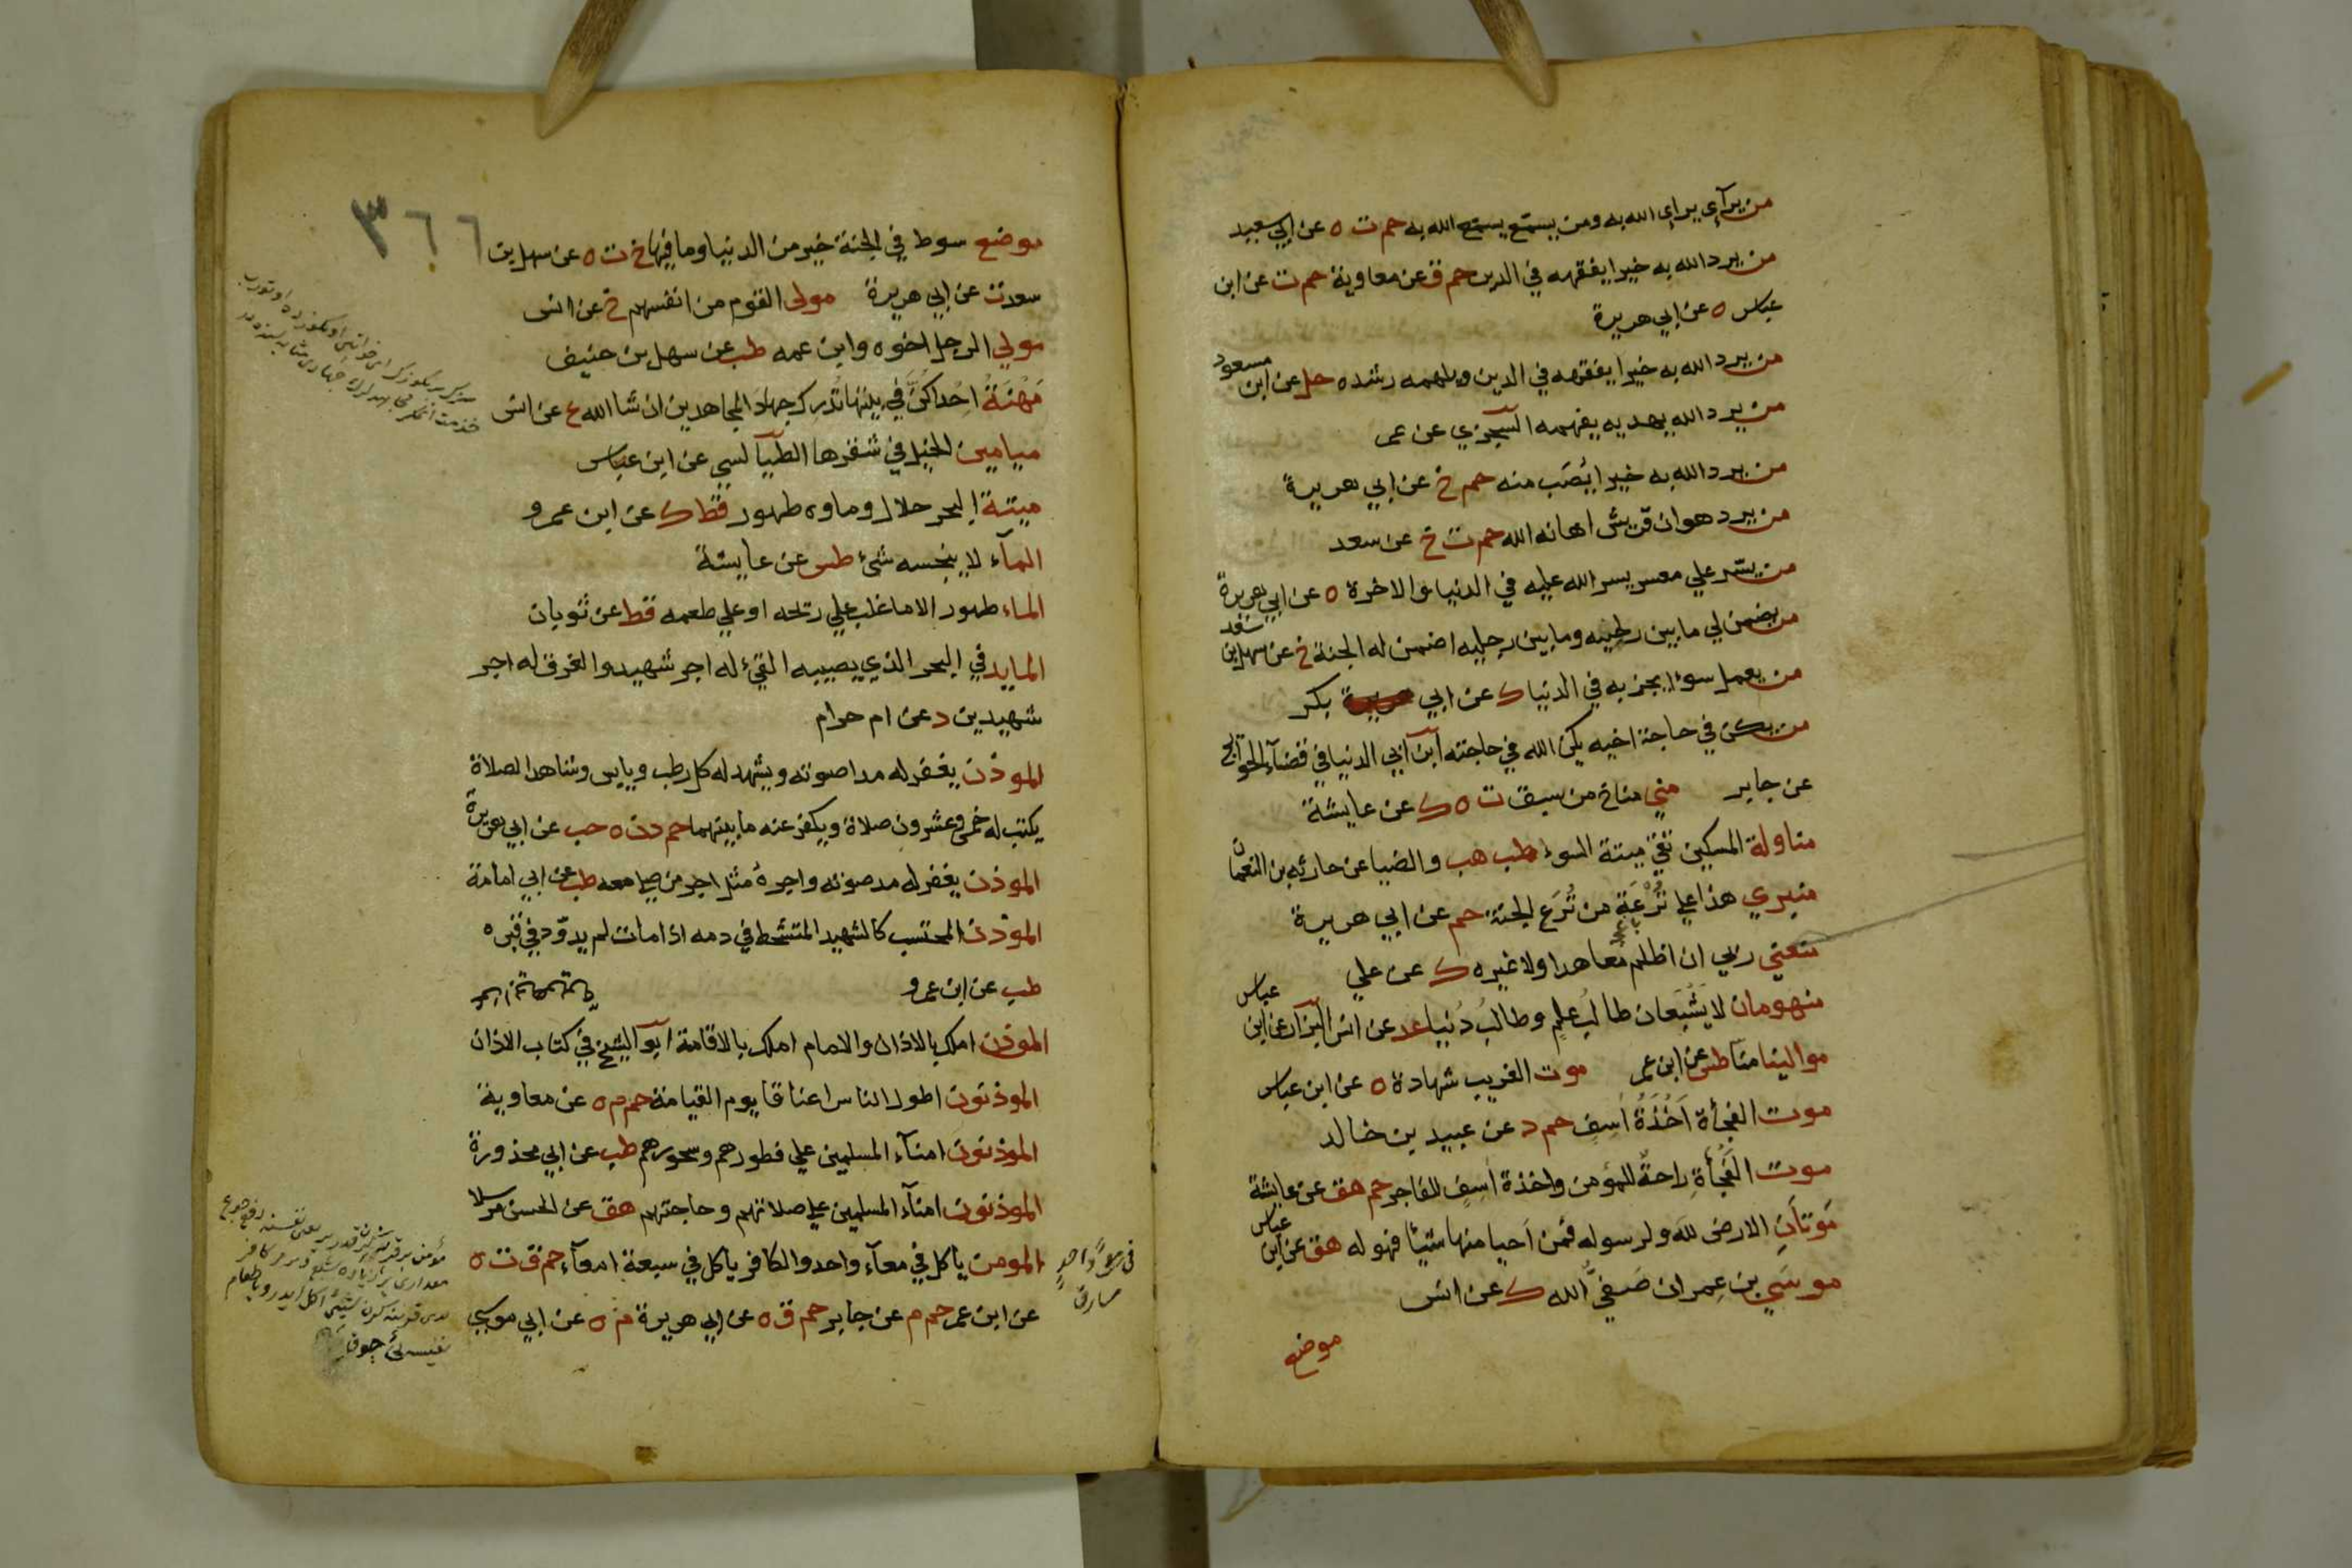 من يرآءي يراءي الله به ومن يسمّع يسمع الله به حم ت ه عن ابي سعيد
من يرد الله به خيرا يفقهه في الدين حم ق عن معاوية حم ت عن ابن
عباس ه عن ابي هريرة
من يرد الله به خيرا يفقهه في الدين ويلهمه رشده حل عن ابن مسعود
من يرد الله يهديه يفهمه السجزي عن عمر
من يرد الله به خيرا يُصَب منه حم خ عن ابي هريرة
من يرد هوان قريش اهانه الله حم ت خ عن سعد
من يسّر علي معسر يسر الله عليه في الدنيا والاخرة ه عن ابي هريرة
من يضمن لي ما بين لحييه وما بين رجليه اضمن له الجنة خ عن سهل بن سعد
من يعمل سوءا يجز به في الدنيا ك عن ابي بكر
من يكن في حاجة اخيه يكن الله في حاجته ابن ابي الدنيا في قضآء الحوائج
عن جابر مني مناخ من سبق ت ه ك عن عايشة
مناولة المسكين تقي ميتة السوء طب هب والضيا عن حارثه بن النعمان
منبري هذا علي تُرْعَةٍ من تُرَع الجنة حم عن ابي هريرة
منعني ربي ان اظلم مُعاهدا ولا غيره ك عن علي
منهومان لا يَشْبَعَان طالبُ علمٍ وطالبُ دُنيا عد عن انس البزار عن ابن عباس
موالينا منا طس عن ابن عمر موت الغريب شهادة ه عن ابن عباس
موت الفجأة اَخْذَةُ اَسِف حم د عن عبيد بن خالد
موت الفُجأةِ راحةٌ للمؤمن واخذة اَسِفٍ للفاجر حم هق عن عايشة
مَوَتَانِ الارض لله ولرسوله فمن اَحيا منها شيئًا فهو له هق عن ابن عباس
موسَي بن عِمران صَفيُّ الله ك عن انس
موضع
٣٦٦
موضع سوط في الجنة خير من الدنيا وما فيها خ ت ه عن سهل بن
سعد ت عن ابي هريرة مولي القوم من انفسهم خ عن انس
مولي الرجل اخوه وابن عمه طب عن سهل بن حنيف
مَهْنَةُ اِحْداكُنَّ في بيتها تُدْرِك جهادَ المجاهدين ان شا الله ع عن انس
ميامين الخيل في شقرها الطيالسي عن ابن عباس
ميتة البحر حلال وماوه طهور قط ك عن ابن عمرو
المآء لا ينجسه شئ طس عن عايشة
الماء طهور الا ما غلب علي ريحه او علي طعمه قط عن ثوبان
المايد في البحر الذي يصيبه القئ له اجر شهيد والغرق له اجر
شهيدين د عن ام حرام
الموذن يغفر له مدا صوته ويشهد له كل رطب ويابس وشاهد الصلاة
يكتب له خمس وعشرون صلاة ويكفر عنه ما بينهما حم د ن ه حب عن ابي هريرة
الموذن يغفر له مد صوته واجره مثل اجر من صلي معه طب عن ابي امامة
الموذن المحتسب كالشهيد المتشحط في دمه اذا مات لم يدوّد في قبره
طب عن ابن عمرو
الموذن املك بالاذان والامام املك بالاقامة ابو الشيخ في كتاب الاذان
الموذنون اطول الناس اعناقا يوم القيامة حم م ه عن معاوية
الموذنون امنآء المسلمين علي فطورهم وسحورهم طب عن ابي محذورة
الموذنون امنآء المسلمين علي صلاتهم وحاجتهم هق عن الحسن مرسلا
المومن ياكل في معآء واحد والكافر ياكل في سبعة امعآء حم ق ت ه
عن ابن عمر حم م عن جابر حم ق ه عن ابي هريرة م ه عن ابي موسي